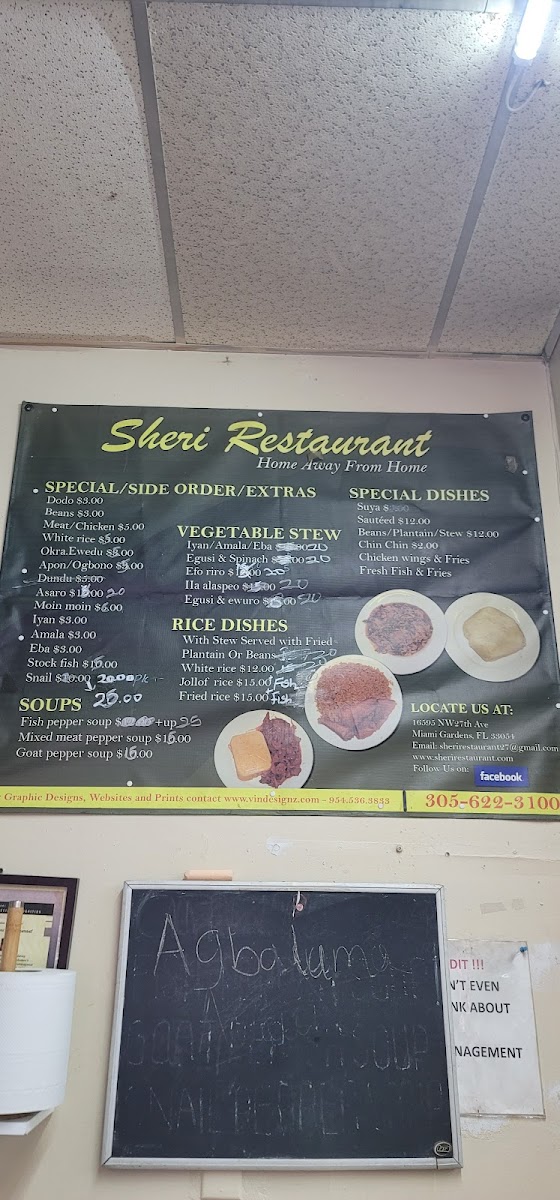 Sheri Restaurant
Home Away From Home
SPECIAL/SIDE ORDER/EXTRAS
Dodo $3.00
Beans $3.00
Meat/Chicken $5.00
White rice $5.00
Okra.Ewedu $5.00
Apon/Ogbono $5.00
Dundu $5.00
Asaro 20
Moin moin $6.00
Iyan $3.00
Amala $3.00
Eba $3.00
Stock fish
Snail 20.00
25.00
SOUPS
Fish pepper soup +up 25
Mixed meat pepper soup $15.00
Goat pepper soup $15.00
VEGETABLE STEW
Iyan/Amala/Eba 20
Egusi & Spinach 20
Efo riro 20
Ila alaspeo 20
Egusi & ewuro 20
RICE DISHES
With Stew Served with Fried
Plantain Or Beans 20
White rice $12.00
Jollof rice $15.00 Fish
Fried rice $15.00 Fish
SPECIAL DISHES
Suya
Sautéed $12.00
Beans/Plantain/Stew $12.00
Chin Chin $2.00
Chicken wings & Fries
Fresh Fish & Fries
LOCATE US AT:
16595 NW27th Ave
Miami Gardens, FL 33054
Email: sherirestaurant27@gmail.com
www.sherirestaurant.com
Follow Us on: facebook
Graphic Designs, Websites and Prints contact www.vindesignz.com - 954.536.3833
305-622-3100
Agbaluma
SOUP
DIT !!!
N'T EVEN
NK ABOUT
NAGEMENT